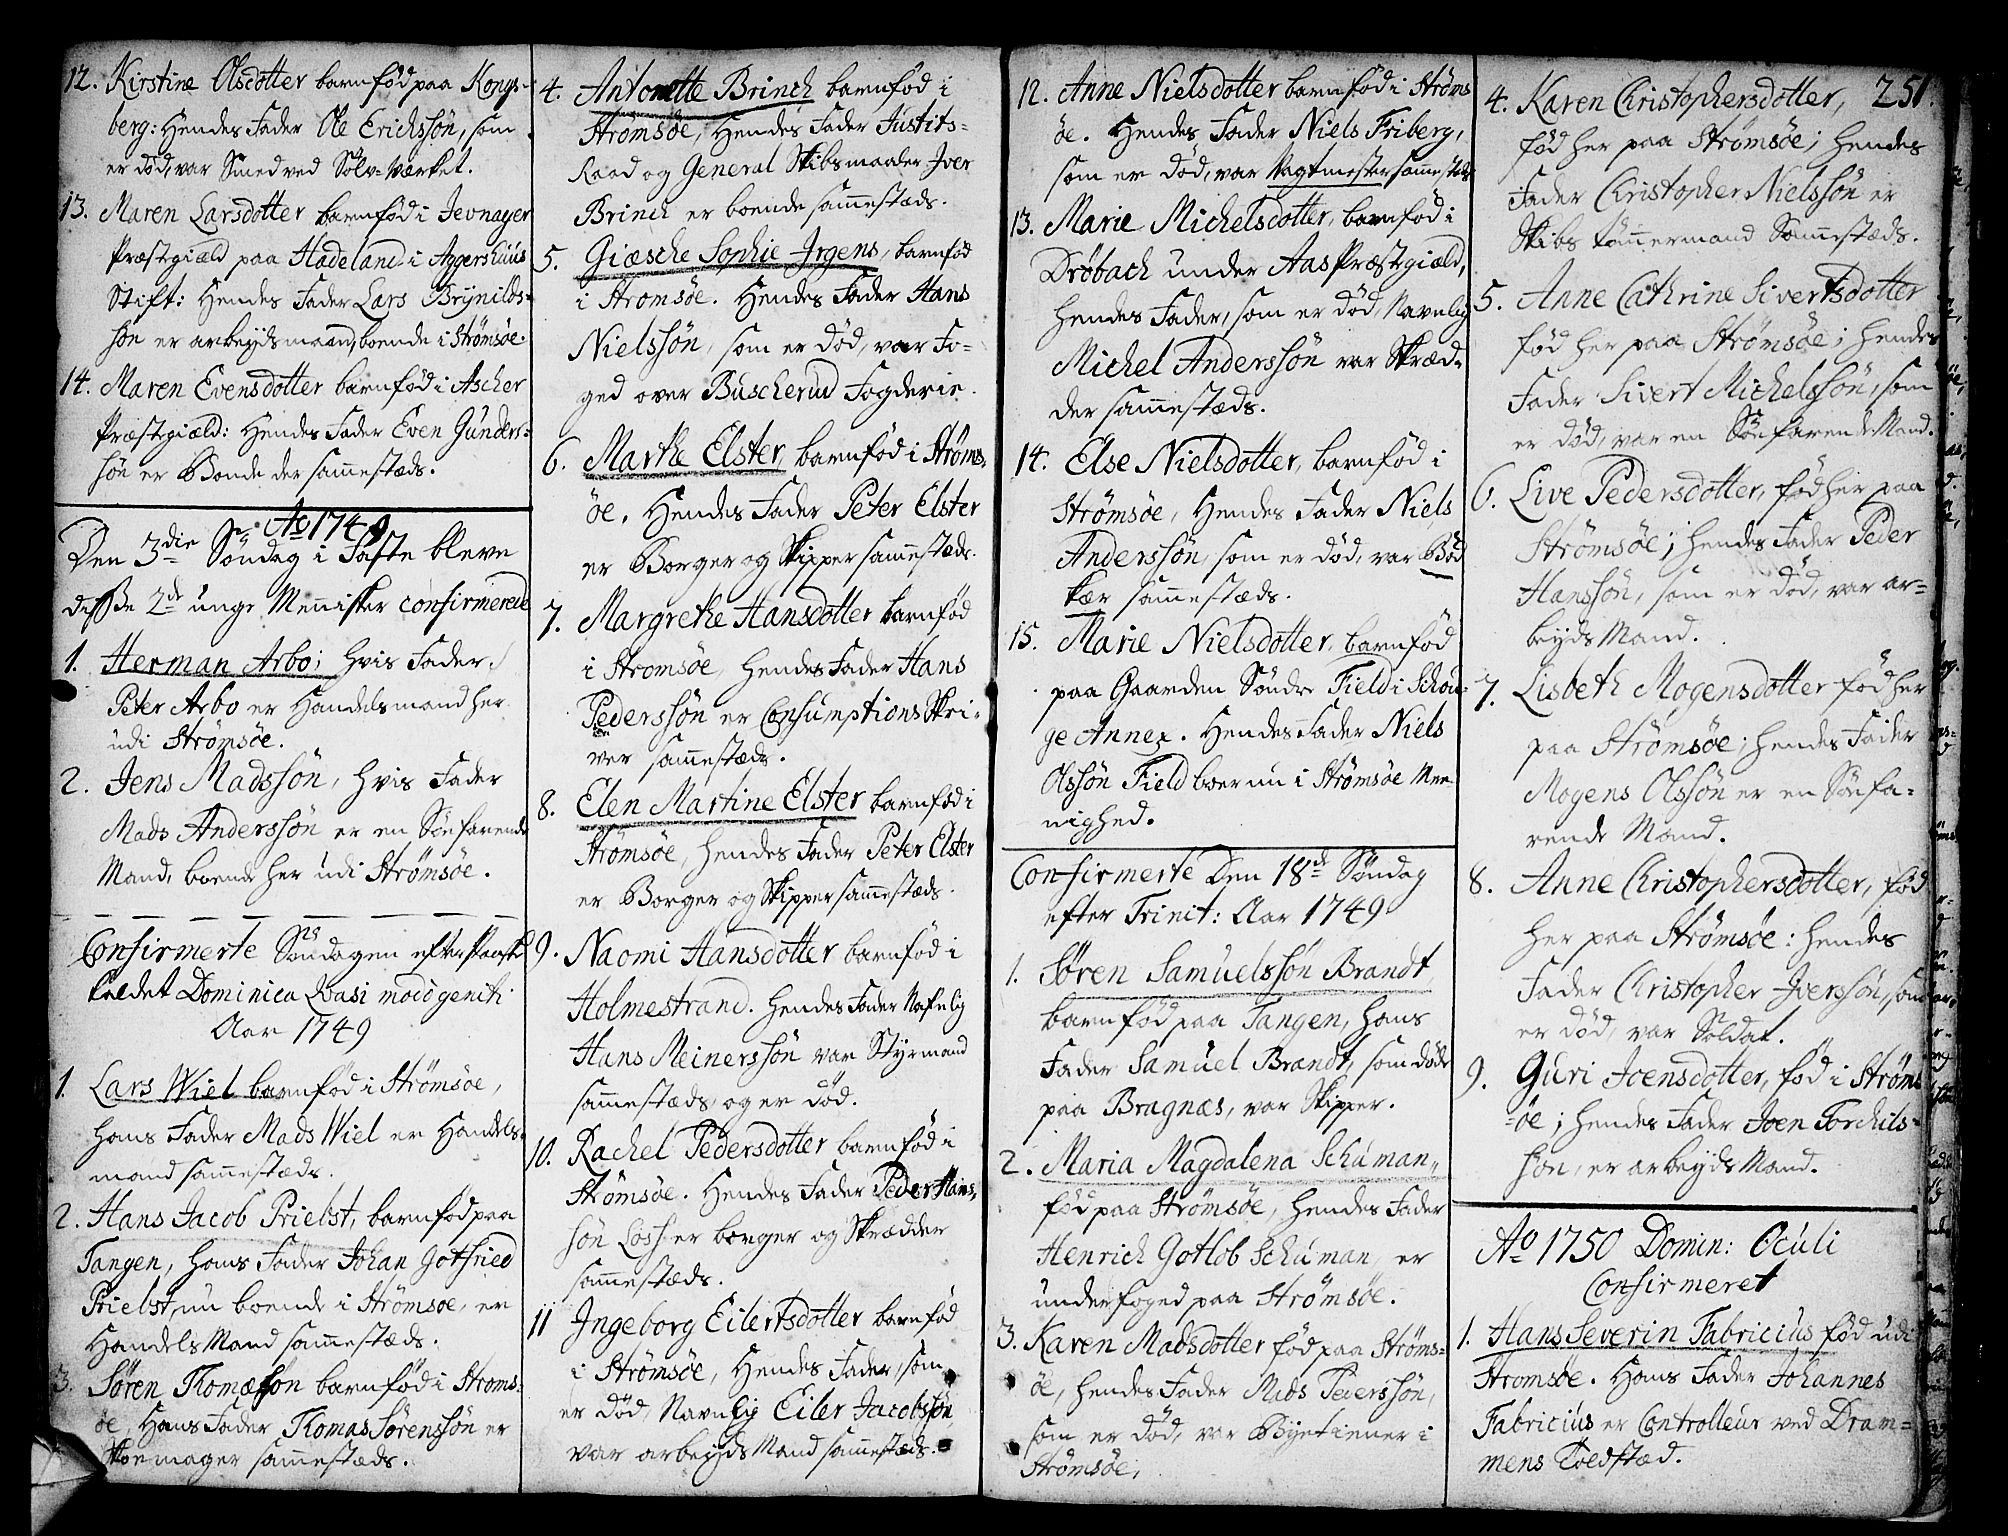 12. Kirstine Olsdotter barnfød paa Kongs-
berg: Hendes Fader Ole Erichssøn, som
er død, var Smed ved Sølv-Værket.
13. Maren Larsdotter barnfød i Jevnager
Præstgiæld paa Hadeland i Aggershuus
Stift: Hendes Fader Lars Brÿnilds-
søn er arbeydsmand, boende i Strømsøe.
14. Maren Evensdotter barnfød i Ascher
Præstgiæld: Hendes Fader Even Gunders-
søn er Bonde der sam̄estæds.
Ao 1749
Den 3die Søndag i Faste bleve
disse 2de unge Mennisker confirmerede
1. Herman Arbo; hvis Fader
Peter Arbo er Handelsmand her
udi Strømsøe.
2. Jens Madssøn, hvis Fader
Mads Anderssøn er en Søefarende
Mand, boende her udi Strømsøe.
Confirmerte Søndagen efter Paaske
kaldet Dominica Qvasi modogeniti
Aar 1749
1. Lars Wiel barnfød i Strømsøe,
Hans Fader Mads Wiel er Handels-
mand sam̄estæds.
2. Hans Jacob Prielst, barnfød paa
Tangen, Hans Fader Johan Gotfried
Prielst, nu boende i Strømsøe, er
Handels Mand sam̄estæds.
3. Søren Thomæsøn barnfød i Strøms-
øe, Hans Fader Thomas Sørenssøn er
Skoemager sam̄estæds.
4. Antonette Brinch barnfød i
Strømsøe, Hendes Fader Justits-
Raad og General Skibsmaaler Iver
Brinch er boende sam̄estæds.
5. Giæsche Sophie Irgens, barnfød
i Strømsøe. Hendes Fader Hans
Nielssøn, som er død, var Fo-
ged over Buscherud Fogderie.
6. Marthe Elster barnfød i Strøms-
øe. Hendes Fader Peter Elster
er Borger og Skipper sam̄estæds.
7. Margrethe Hansdotter barnfød
i Strømsøe, Hendes Fader Hans
Pederssøn er Consumptions Skri-
ver sam̄estæds.
8. Elen Martine Elster barnfød i
Strømsøe, Hendes Fader Peter Elster
er Borger og Skipper sam̄estæds.
9. Naomi Hansdotter barnfød i
Holmestrand. Hendes Fader Nafnlig
Hans Meinerssøn var Styrmand
sam̄estæds, og er død.
10. Rachel Pedersdotter barnfød i
Strømsøe. Hendes Fader Peder Hans-
søn Loss er borger og Skrædder
sam̄estæds.
11 Ingeborg Eilertsdotter barnfød
i Strømsøe, Hendes Fader, som
er død, Navnlig Eiler Jacobssøn
var arbeyds Mand sam̄estæds.
12. Anne Nielsdotter barnfød i Strøms
øe. Hendes Fader Niels Friberg,
som er død, var Vagtmester sam̄estæds
13. Marie Michelsdotter, barnfød i
Drøbach under Aas Præstgiæld,
Hendes Fader, som er død, Navnlig
Michel Anderssøn var Skræd-
der sam̄estæds.
14. Else Nielsdotter, barnfød i
Strømsøe, Hendes Fader Niels
Anderssøn, som er død, var Bød
ker sam̄estæds.
15. Marie Nielsdotter, barnfød
paa Gaarden Søndre Field i Schou-
ge Annex. Hendes Fader Niels
Olssøn Field boer nu i Strømsøe Me-
nighed.
Confirmerte Den 18de Søndag
efter Trinit: Aar 1749
1. Søren Samuelssøn Brandt
barnfød paa Tangen, Hans
Fader Samuel Brandt, som døde
paa Bragnæs, var Skipper.
2. Maria Magdalena Schuman
fød paa Strømsøe, Hendes Fader
Henrich Gotlob Schuman, er
underfoged paa Strømsøe.
3. Karen Madsdotter fød paa Strøms-
øe, Hendes Fader Mads Pederssøn,
som er død, var Byetiener i
Strømsøe,
251.
4. Karen Christophersdotter,
fød her paa Strømsøe; Hendes
Fader Christopher Nielssøn er
Skibs Tøm̄ermand Sam̄estæds.
5. Anne Cathrine Sivertsdotter
fød her paa Strømsøe; Hendes
Fader Sivert Michelssøn, som
er død, var en Søefarende Mand.
6. Live Pedersdotter, fød her paa
Strømsøe; Hendes Fader Peder
Hanssøn, som er død, var ar-
beyds Mand.
7. Lisbeth Mogensdotter fød her
paa Strømsøe; Hendes Fader
Mogens Olssøn er en Søefa-
rende Mand.
8. Anne Christophersdotter, fød
her paa Strømsøe: Hendes
Fader Christopher Iverssøn, som
er død, var Soldat.
9. Guri Joensdotter, fød i Strøms
-øe; Hendes Fader Joen Torchils-
søn, er arbeyds Mand.
Ao 1750 Domin: Oculi
Confirmeret
1. Hans Severin Fabricius fød udi
Strømsøe. Hans Fader Johannes
Fabricius er Controlleur ved Dram-
mens Toldstæd.